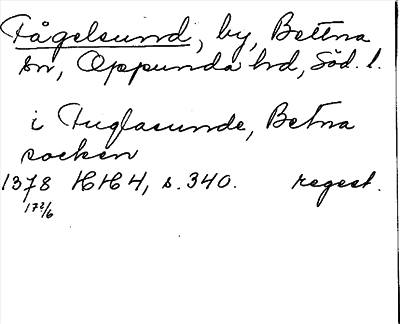 Fågelsund, by, Bettna
sn, Oppunda hd, Söd. l.
i Fuglasunde, Betna
socken
1378 HH 4, s. 340. regest.
17 2/6